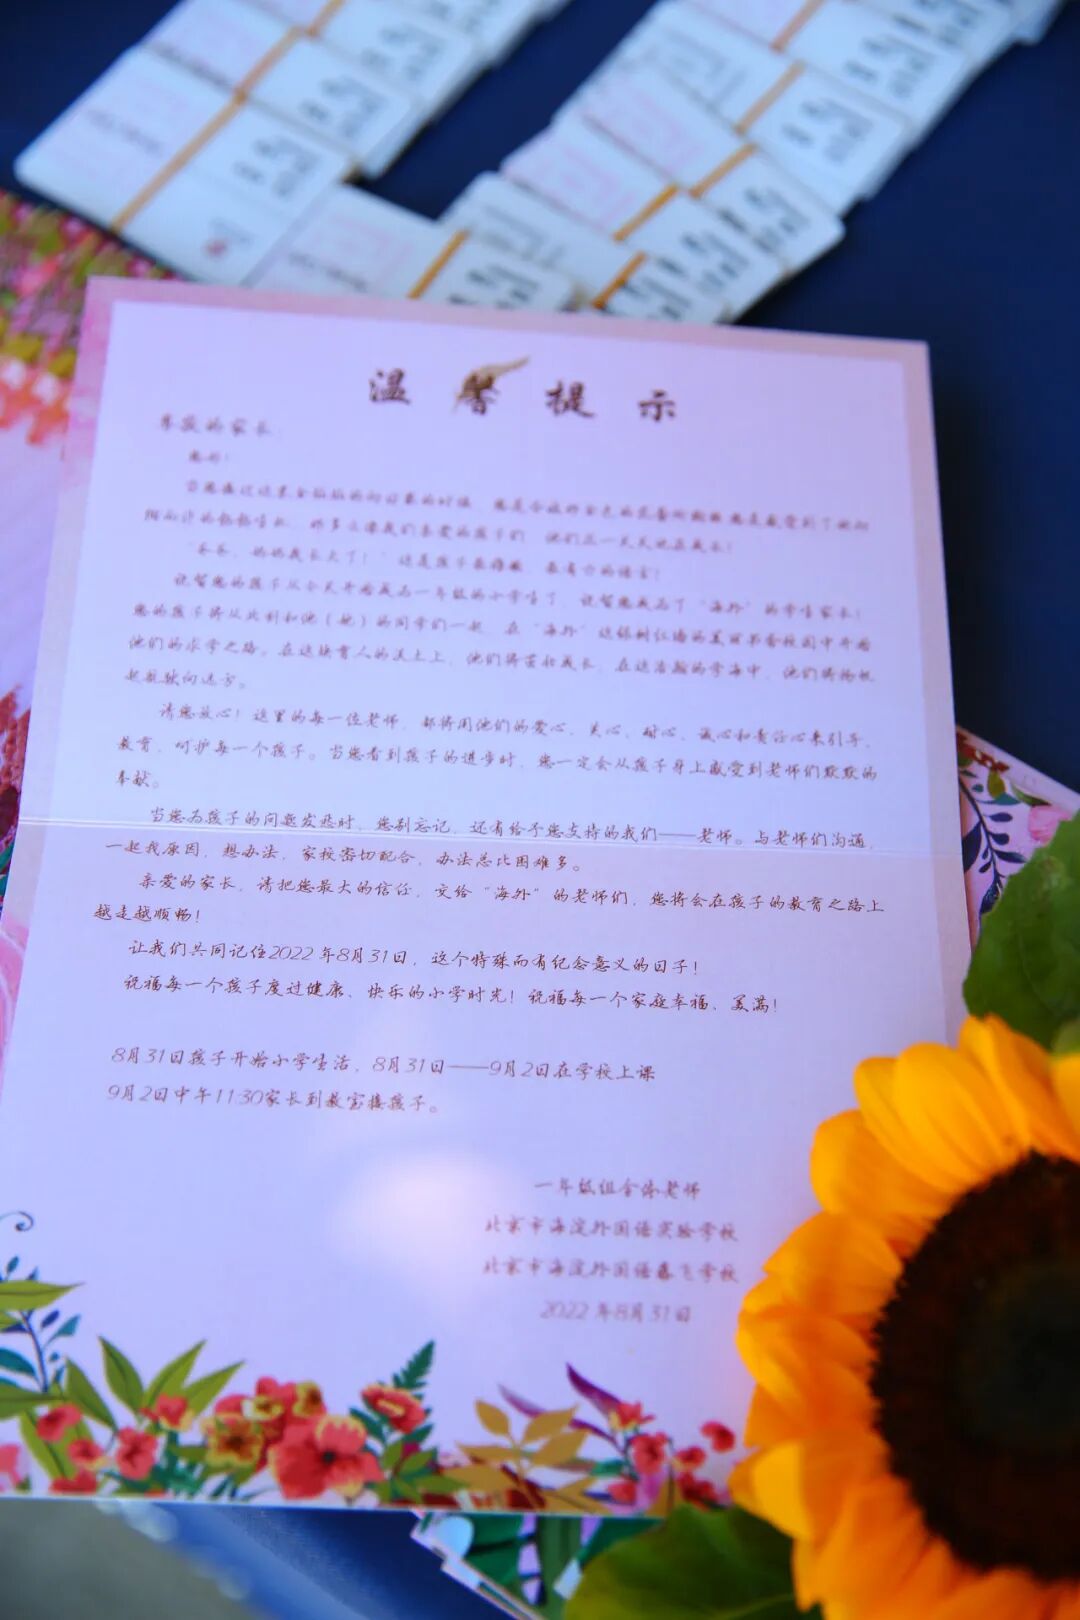 温馨提示
尊敬的家长：
您好！
的时候
细心地 那多么像我们亲爱的孩子们 他们正一天天地在成长！
“爸爸，妈妈我长大了！”这是孩子最 最有力的语言！
祝贺您的孩子从今天开始成为一年级的小学生了，祝贺您成为了“海外”的学生家长！
您的孩子将从此刻和他（她）的同学们一起，在“海外”这绿树红墙的美丽书香校园中开始
他们的求学之路。在这块育人的沃土上，他们将茁壮成长，在这浩瀚的学海中，他们将扬帆
起航驶向远方。
请您放心！这里的每一位老师，都将用他们的爱心、关心、耐心、诚心和责任心来引导、
教育、呵护每一个孩子。当您看到孩子的进步时，您一定会从孩子身上感受到老师们默默的
奉献。
当您为孩子的问题发愁时，您别忘记，还有给予您支持的我们——老师。与老师们沟通，
一起找原因，想办法，家校密切配合，办法总比困难多。
亲爱的家长，请把您最大的信任，交给“海外”的老师们，您将会在孩子的教育之路上
越走越顺畅！
让我们共同记住2022年8月31日，这个特殊而有纪念意义的日子！
祝福每一个孩子度过健康、快乐的小学时光！祝福每一个家庭幸福、美满！
8月31日孩子开始小学生活，8月31日——9月2日在学校上课
9月2日中午11:30家长到教室接孩子。
一年级组全体老师
北京市海淀外国语实验学校
北京市海淀外国语腾飞学校
2022年8月31日